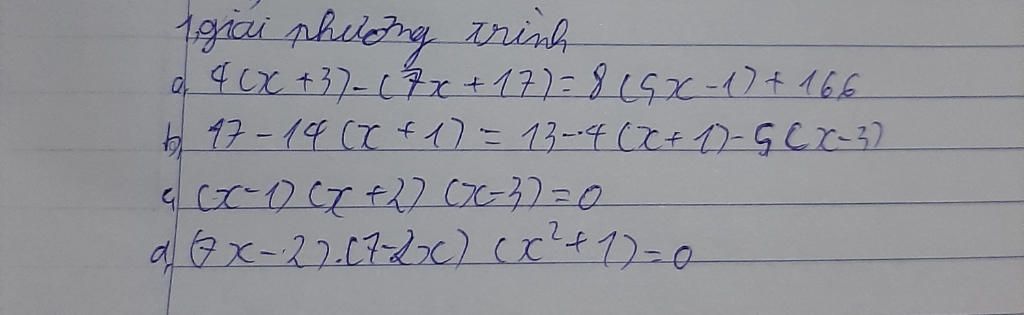 1, giải phương trình
a, 4(x+3)-(7x+17)=8(5x-1)+166
b, 17-14(x+1)=13-4(x+1)-5(x-3)
c, (x-1)(x+2)(x-3)=0
d, (7x-2).(7-2x)(x²+1)=0